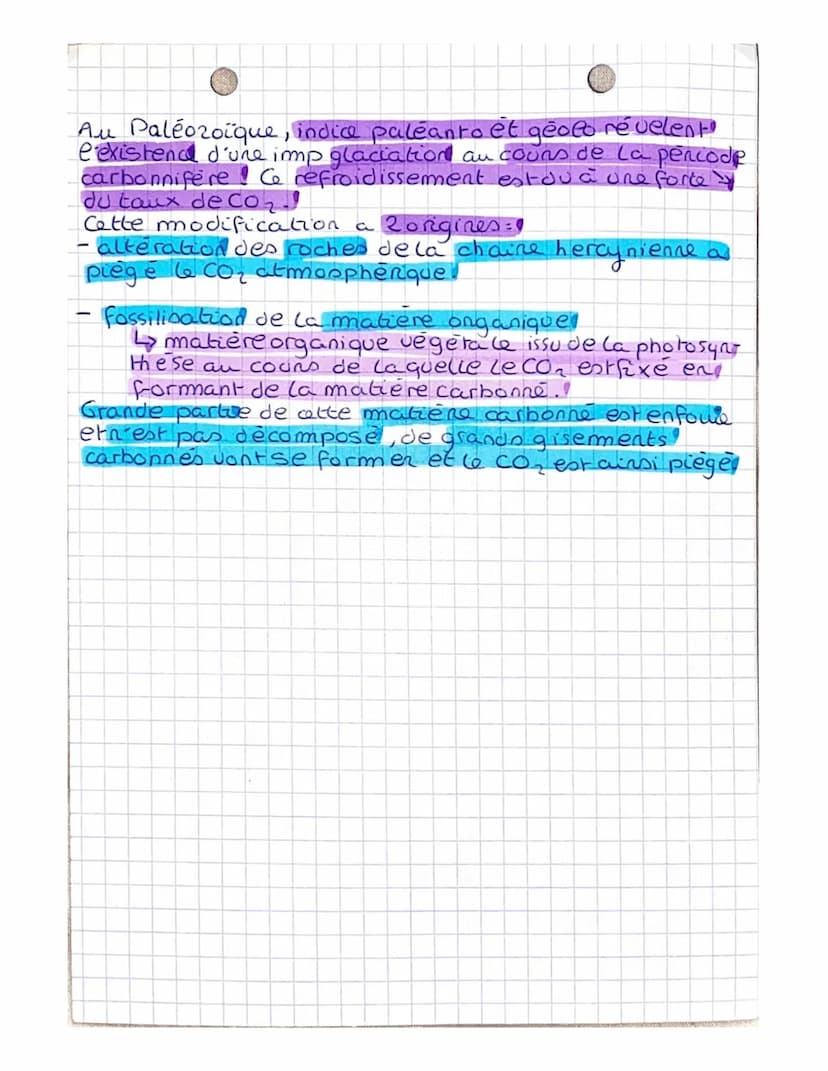 Au Paléozoïque, indice paléanto et géolo révèlent
l'existence d'une imp glaciation au cours de la période
carbonnifère ! Ce refroidissement est dû à une forte ↘
du taux de CO₂.
Cette modification a 2 origines :
- altération des roches de la chaine hercynienne a
piégé le CO₂ atmosphérique.
- Fossilisation de la matière organique
↳ matière organique végétale issu de la photosyn-
thèse au cours de laquelle le CO₂ est fixé en
formant de la matière carboné.
Grande partie de cette matière carboné est enfouie
et n'est pas décomposé, de grands gisements
carbonnés vont se former et le CO₂ est ainsi piégé